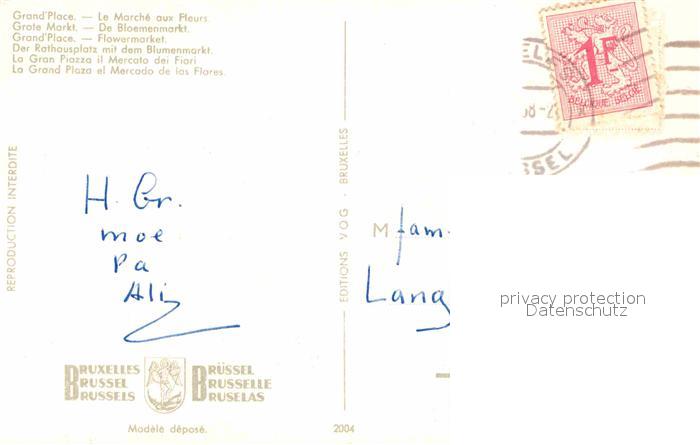 Grand'Place. — Le Marché aux Fleurs.
Grote Markt. — De Bloemenmarkt.
Grand'Place. — Flowermarket.
Der Rathausplatz mit dem Blumenmarkt.
La Gran Piazza il Mercato dei Fiori
La Grand Plaza el Mercado de las Flores.
1F
BELGIQUE BELGIE
SSEL
REPRODUCTION INTERDITE
EDITIONS VOG - BRUXELLES
H. Gr.
moe
Pa
Ali
M fam.
Lang
privacy protection
Datenschutz
BRUXELLES
BRUSSEL
BRUSSELS
BRÜSSEL
BRUSSELLE
BRUSELAS
Modèle déposé.
2004